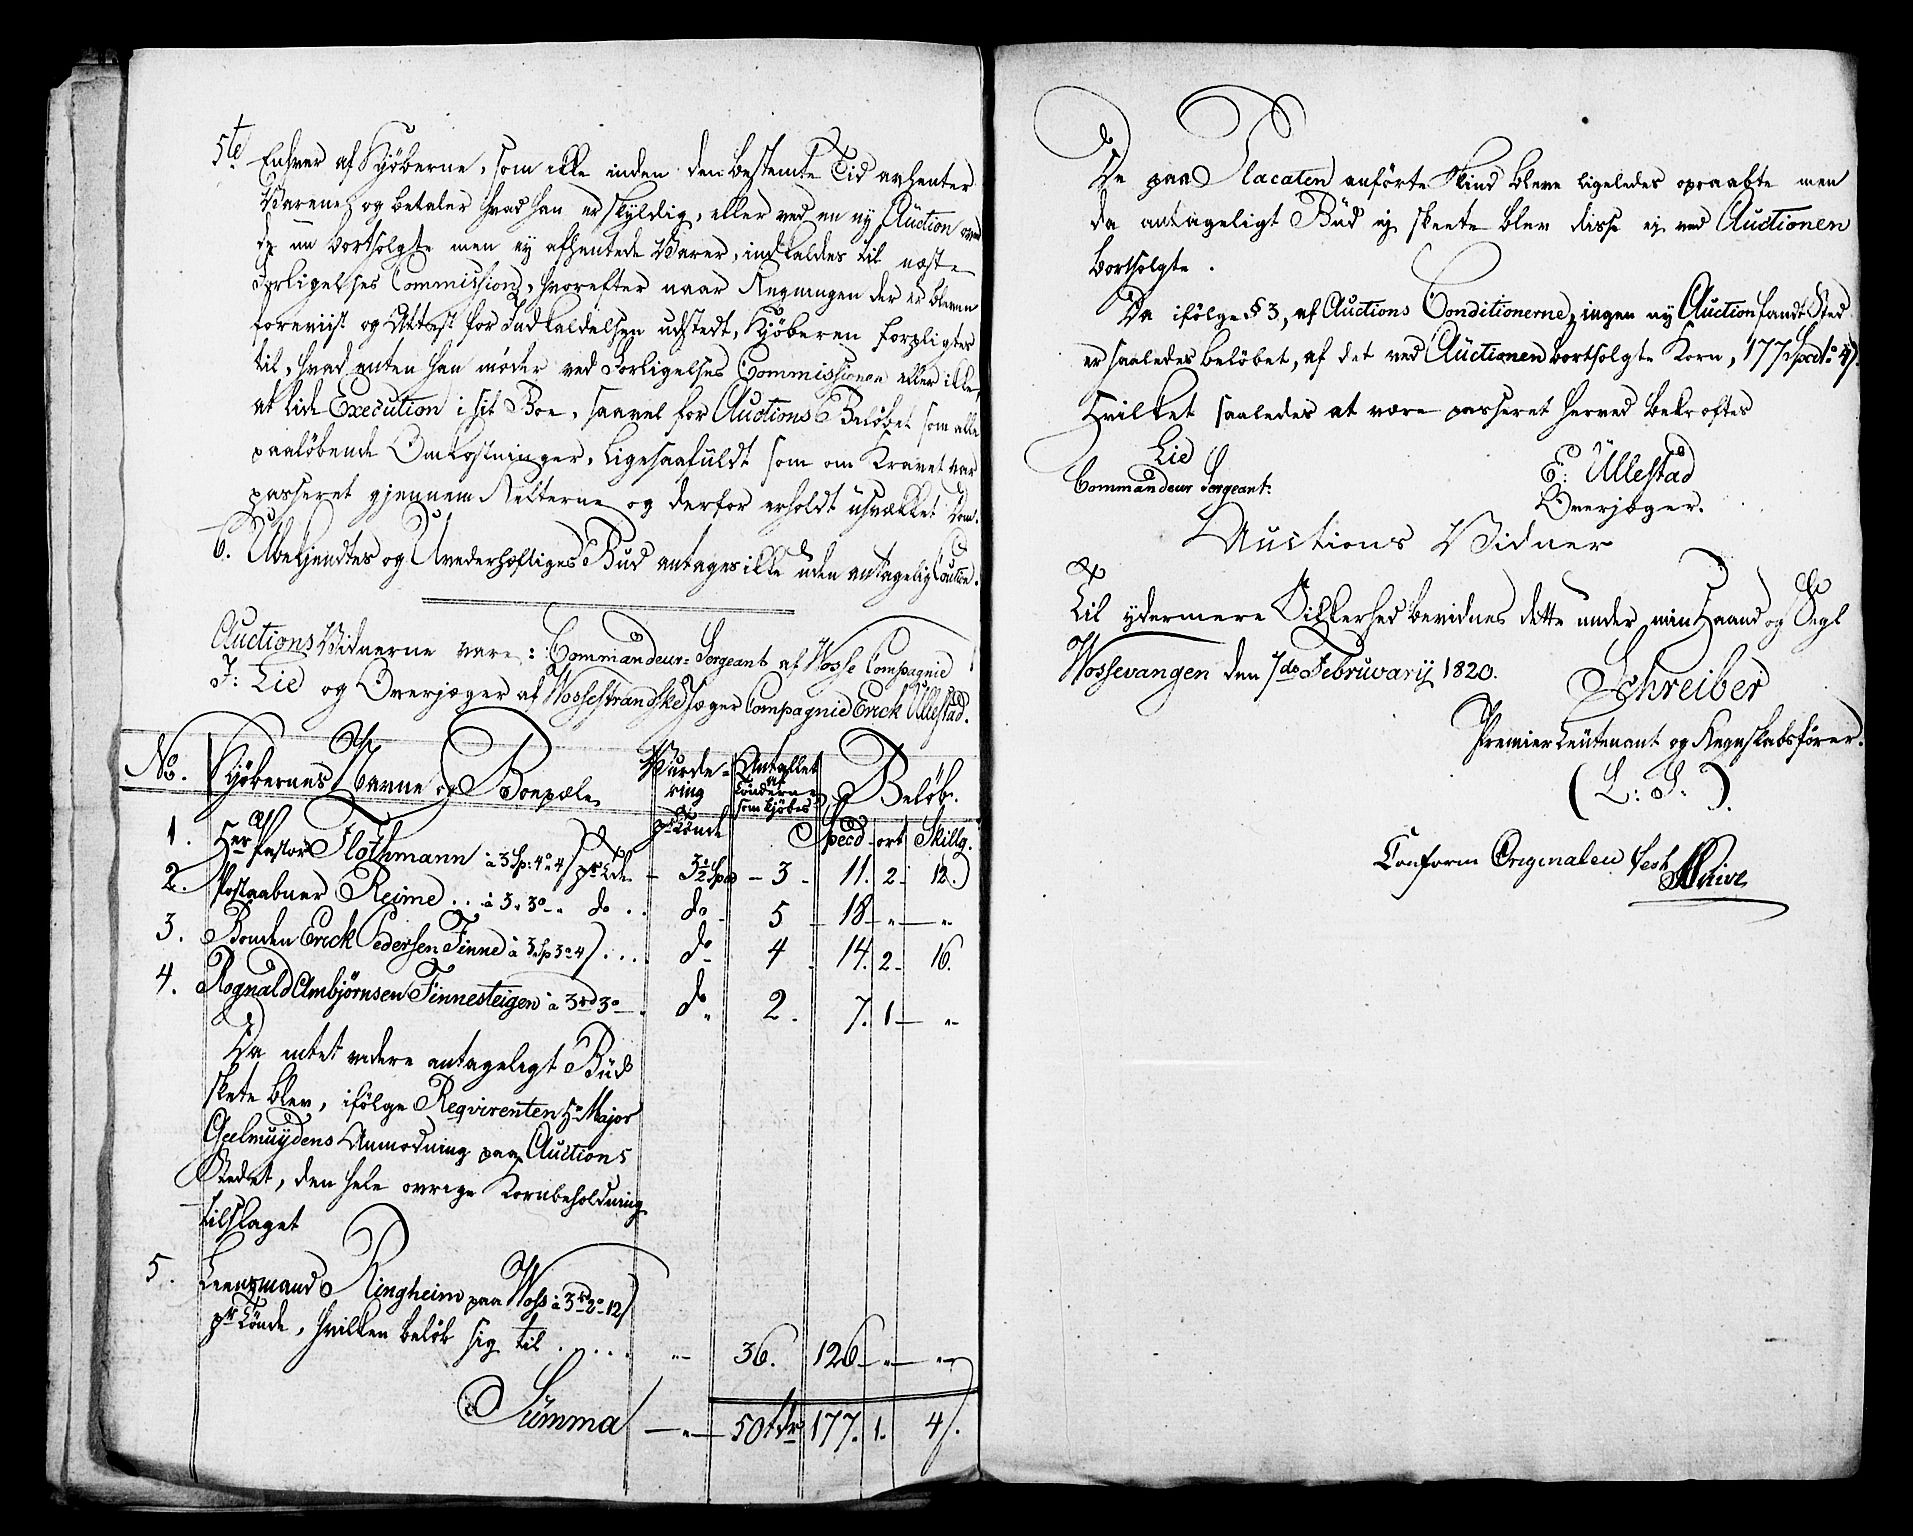 5te Enhver af Kjøberne, som ikke inden den bestemte Tid avhenter
Varene, og betaler hvad han er skyldig, eller ved en ny Auction over
de nu bortsolgte men ey afhentede Varer, indkaldes til næste
Forligelses Commission, hvorefter naar Regningen der er bleven
foreviist og Attest for Indkaldelsen udstedt, Kjøberen forpligtes
til, hvad enten han møder ved Forligelses Commissionen eller ikke,
at lide Execution i sit Boe, saavel for Auctions Beløbet som alle
paaløbende Omkostninger, ligesaafuldt som om Kravet var
passeret gjennem Retterne og derfor erholdt usvækket Dom.
6. Ubekjendtes og Uvederhæftiges Bud antages ikke uden antagelig Caution.
Auctions Vidnerne vare: Commandeur-Sergeant af Vosse Compagnie
J: Lie og Overjæger af Vossestrandske Jæger Compagnie Erick Ullestad.
No. Kjøbernes Navne og Boepæle Vurdering pr Tønde Antallet af Tønderne som kjøbes Beløb.
Specd ort Skillg.
1. Hr Pastor Flothmann à 3 Sp: 4 o 4 s pr Tde 3½ Spd 3 11. 2. 12.
2. Postaabner Reime .. à 3 „ 3 o „ do .. do 5 18 „ „
3. Bonden Erick Pedersen Finne à 3 Sp 3 o 4 s .... do 4 14. 2. 16.
4. Rognald Ambjørnsen Finnesteigen à 3 rd 3 o do 2. 7. 1 „
Da intet videre antageligt Bud
skete blev, ifølge Reqvirenten Hr Major
Geelmuydens Anmodning paa Auctions
Stedet, den hele øvrige Kornbeholdning
tilslaget
5. Lensmand Ringheim paa Voss à 3 rd 2 o 12 s
pr Tønde, hvilken beløb sig til ..... „ 36. 126 „ „
Summa „ 50 tdr 177. 1. 4 s.
De paa Placaten anførte Skind bleve ligeledes opraabte men
da antageligt Bud ej skeete blev disse ej ved Auctionen
bortsolgte.
Da ifølge § 3, af Auctions Conditionerne, ingen ny Auction fandt Sted
er saaledes beløbet, af det ved Auctionen bortsolgte Korn, 177 Spd 1 o 4 s.
Hvilket saaledes at være passeret herved bekræftes
Lie E: Ullestad
Commandeur Sergeant. Overjæger.
Auctions Vidner
Til ydermere Sikkerhed bevidnes dette under min Haand og Segl
Vossevangen den 7de Februarij 1820.
Schreiber
Premier Leutenant og Regnskabsfører.
(L. S.).
Conform Originalen test